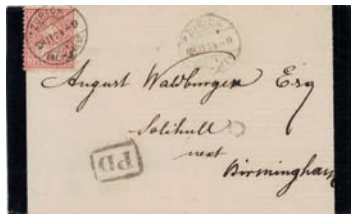 ZÜRICH
August Waldburger Esq
Solihull
next
Birmingham
PD